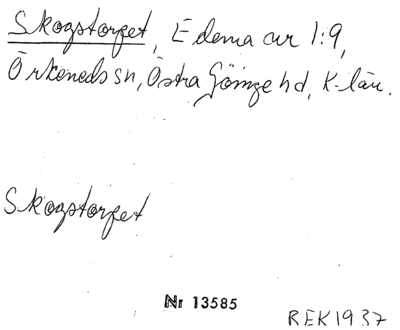 Skogstorpet, Edema cur 1:9,
Örkeneds sn, Östra Göinge hd, K-län.
Skogstorpet
Nr 13585
REK1937